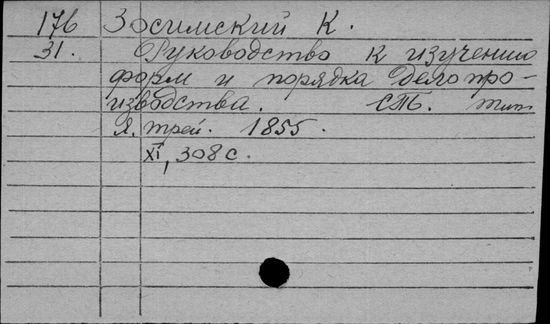 176 Зосимский К.
31. Руководство к изучению
форм и порядка делопро-
изводства. СПб. тип.
Я. Трей. 1855.
XI, 308 с.